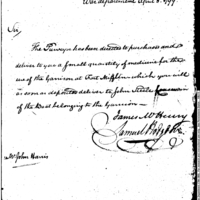 War department April 8. 1799.
Sir,
The Purveyor has been directed to purchase and
deliver to you a small quantity of medicine for the
use of the Garrison at Fort Mifflin which you will
as soon as deposited deliver to John
of the Boat belonging to the Garrison
James McHenry
Samuel Hodgdon
Mr John Harris